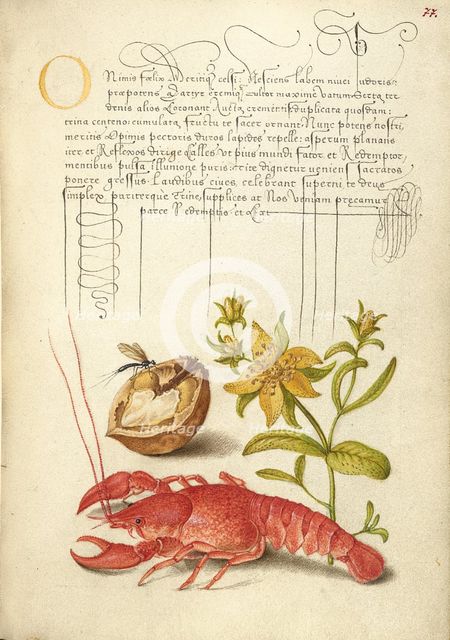 77.
O Nimis fœlix Meritiq celsi: Nesciens labem niuei pudoris:
præpotens Martyr eremiq Cultor maxime vatum. Serta ter
denis alios Coronant Aucta crementis duplicata quosdam:
trina centeno: cumulata fructu te sacer ornant. Nunc potens nostri,
meritis Opimus pectoris duros lapides repelle: asperum planans
iter et Reflexos dirige Calles Vt pius mundi sator et Redemptor,
mentibus pulsa illuuione puris: rite dignetur veniens Sacratos
ponere gressus. Laudibus ciues, celebrant superni te deus
simplex pariterque Trine, supplices at Nos Veniam precamur
parce Redemptis. et c.
Heritage
Heritage
Heritage
Heritage